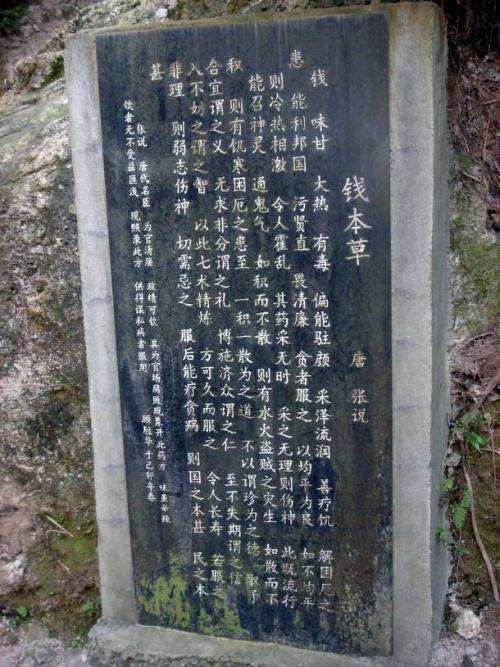 钱本草
唐 张说
钱 味甘 大热 有毒 偏能驻颜 采泽流润 善疗饥 解困厄之
患 能利邦国 污贤直 畏清廉 贪者服之 以均平为良 如不均平
则冷热相激 令人霍乱 其药采无时 采之无理则伤神 此既流行
能召神灵 通鬼气 如积而不散 则有水火盗贼之灾生 如散而不
积 则有饥寒困厄之患至 一积一散为之道 不以谓珍为之德 取予
合宜谓之义 无求非分谓之礼 博施济众谓之仁 至不失期谓之信
入不妨之谓之智 以此七术精炼 方可久而服之 令人长寿 若服之
非理 则弱志伤神 切需忌之 服后能疗贪病 则国之本甚 民之本
甚
张说 唐代名臣 为官清廉 政绩可钦 其为官场腐败现象开此药方 味虽辛辣
饮者无不受益匪浅 现照录此方 供得谋私病者服用 华于己卯年春